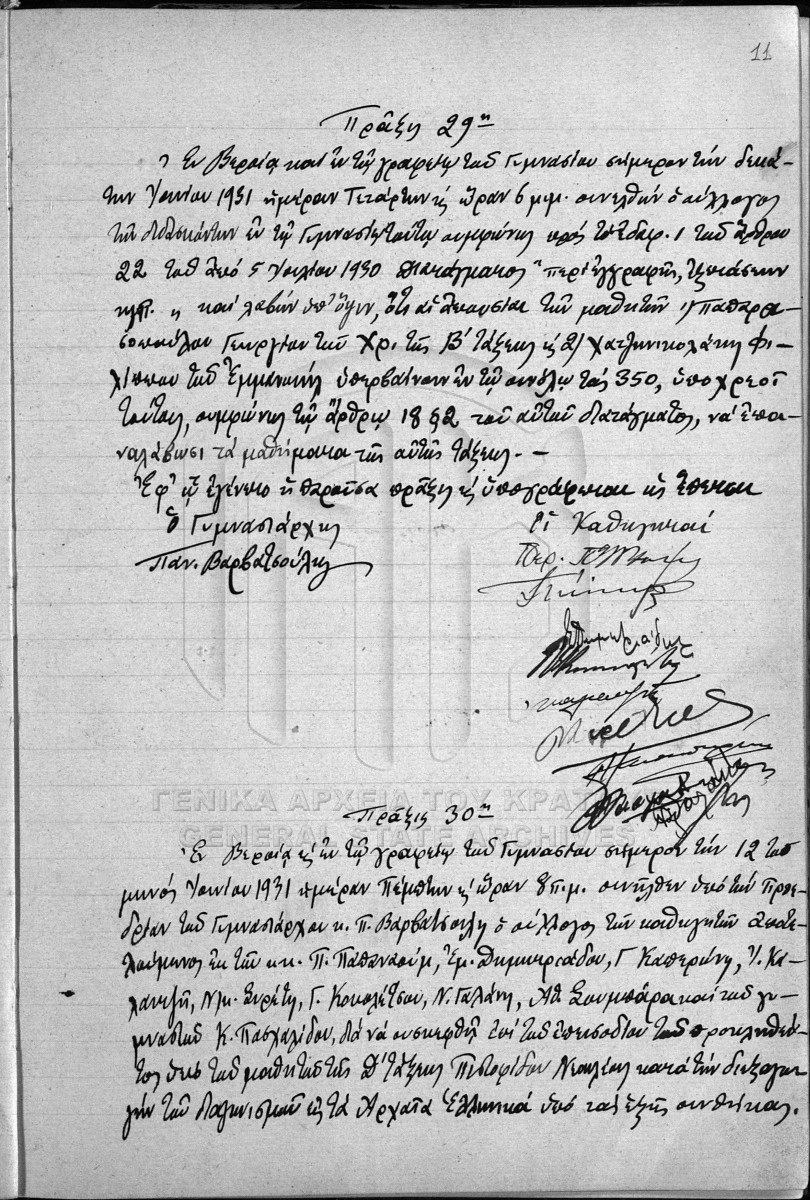 11
Πρᾶξις 29η
Ἐν Βεροίᾳ καὶ ἐν τῷ γραφείῳ τοῦ Γυμνασίου σήμερον τὴν δεκά-
την Ἰουνίου 1931 ἡμέραν Τετάρτην κ ὥραν 6 μ.μ. συνελθὼν ὁ σύλλογος
τῶν διδασκόντων ἐν τῷ Γυμνασίῳ τούτῳ συμφώνως πρὸς τὸ ἐδάφ. 1 τοῦ ἄρθρου
22 τοῦ ἀπὸ 5 Ἰουλίου 1930 Διατάγματος "περὶ ἐγγραφῆς, ἐξετάσεων
κλπ. " καὶ λαβὼν ὑπ' ὄψιν, ὅτι αἱ ἀπουσίαι τῶν μαθητῶν 1) Παπαρα-
σοπούλου Γεωργίου τοῦ Χρ. τῆς Β΄ τάξεως κ 2) Χατζηνικολάκη Φι-
λίππου τοῦ Ἐμμανουὴλ ὑπερβαίνουν ἐν τῷ συνόλῳ τὰς 350, ὑποχρεοῖ
τούτους, συμφώνως τῷ ἄρθρῳ 18 §2 τοῦ αὐτοῦ διατάγματος, νὰ ἐπα-
ναλάβωσι τὰ μαθήματα τῆς αὐτῆς τάξεως. —
Ἐφ' ᾧ ἐγένετο ἡ παροῦσα πρᾶξις κ ὑπογράφεται ὡς ἕπεται
Ὁ Γυμνασιάρχης
Οἱ Καθηγηταί
Παν. Βαρβατσούλης
Δημητριάδης
ΓΕΝΙΚΑ ΑΡΧΕΙΑ ΤΟΥ ΚΡΑΤΟΥΣ
GENERAL STATE ARCHIVES
Πρᾶξις 30η
Ἐν Βεροίᾳ κ ἐν τῷ γραφείῳ τοῦ Γυμνασίου σήμερον τὴν 12 τοῦ
μηνὸς Ἰουνίου 1931 ἡμέραν Πέμπτην κ ὥραν 8 π.μ. συνῆλθεν ὑπὸ τὴν προε-
δρίαν τοῦ Γυμνασιάρχου κ. Π. Βαρβατσούλη ὁ σύλλογος τῶν καθηγητῶν ἀποτε-
λούμενος ἐκ τῶν κκ. Π. Παπαναούμ, Ἐμ. Δημητριάδου, Γ. Καπερώνη, Ἰ. Κα-
λανεζῆ, Νικ. Συρέτη, Γ. Κουλέτσου, Ν. Γαλάνη, Ἀθ. Σουμπάρα καὶ τοῦ γυ-
μναστοῦ Κ. Πασχαλίδου, διὰ νὰ συσκεφθῇ ἐπὶ τοῦ ἐπεισοδίου τοῦ προκληθέν-
τος ὑπὸ τοῦ μαθητοῦ τῆς Δ΄ τάξεως Πιστοφίδου Νεοκλέους κατὰ τὴν διεξαγω-
γὴν τοῦ διαγωνισμοῦ εἰς τὰ Ἀρχαῖα Ἑλληνικὰ ὑπὸ τὰς ἑξῆς συνθήκας.